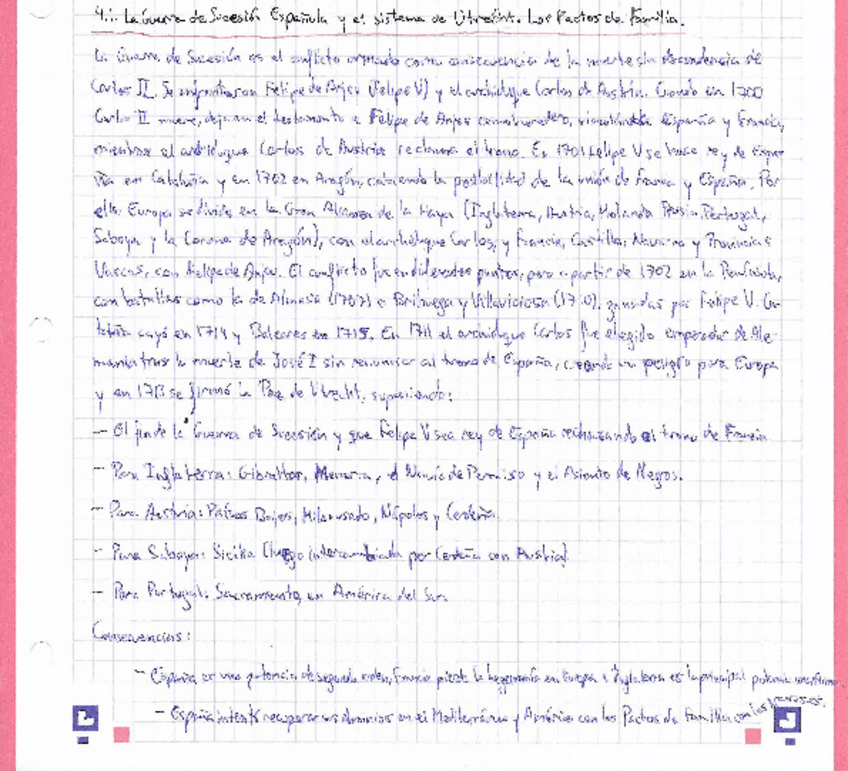 4.1. La Guerra de Sucesión Española y el sistema de Utrecht. Los Pactos de Familia.
La Guerra de Sucesión es el conflicto armado como consecuencia de la muerte sin descendencia de
Carlos II. Se enfrentaron Felipe de Anjou (Felipe V) y el archiduque Carlos de Austria. Cuando en 1700
Carlos II muere, deja en el testamento a Felipe de Anjou como heredero, España y Francia,
mientras el archiduque Carlos de Austria reclama el trono. En 1701 Felipe V se hace rey de Espa-
ña en Cataluña y en 1702 en Aragón, cabiendo la posibilidad de la unión de Francia y España. Por
ello Europa se divide en la Gran Alianza de la Haya (Inglaterra, Austria, Holanda, Prusia, Portugal,
Saboya y la Corona de Aragón), con el archiduque Carlos, y Francia, Castilla, Navarra y Provincias
Vascas, con Felipe de Anjou. El conflicto fue en diferentes puntos, pero a partir de 1702 en la Península,
con batallas como la de Almansa (1707) o Brihuega y Villaviciosa (1710), ganadas por Felipe V. Ca-
taluña cayó en 1714 y Baleares en 1715. En 1711 el archiduque Carlos fue elegido emperador de Ale-
mania tras la muerte de José I sin renunciar al trono de España, creando un peligro para Europa
y en 1713 se firmó la Paz de Utrecht, suponiendo:
- El fin de la Guerra de Sucesión y que Felipe V sea rey de España rechazando el trono de Francia
- Para Inglaterra: Gibraltar, Menorca, el Navío de Permiso y el Asiento de Negros.
- Para Austria: Países Bajos, Milanesado, Nápoles y Cerdeña.
- Para Saboya: Sicilia (luego intercambiada por Cerdeña con Austria)
- Para Portugal: Sacramento, en América del Sur.
Consecuencias:
- España es una potencia de segundo orden, Francia pierde la hegemonía en Europa e Inglaterra es la principal potencia
- España intenta recuperar sus dominios en el Mediterráneo y América con los Pactos de Familia con los franceses.